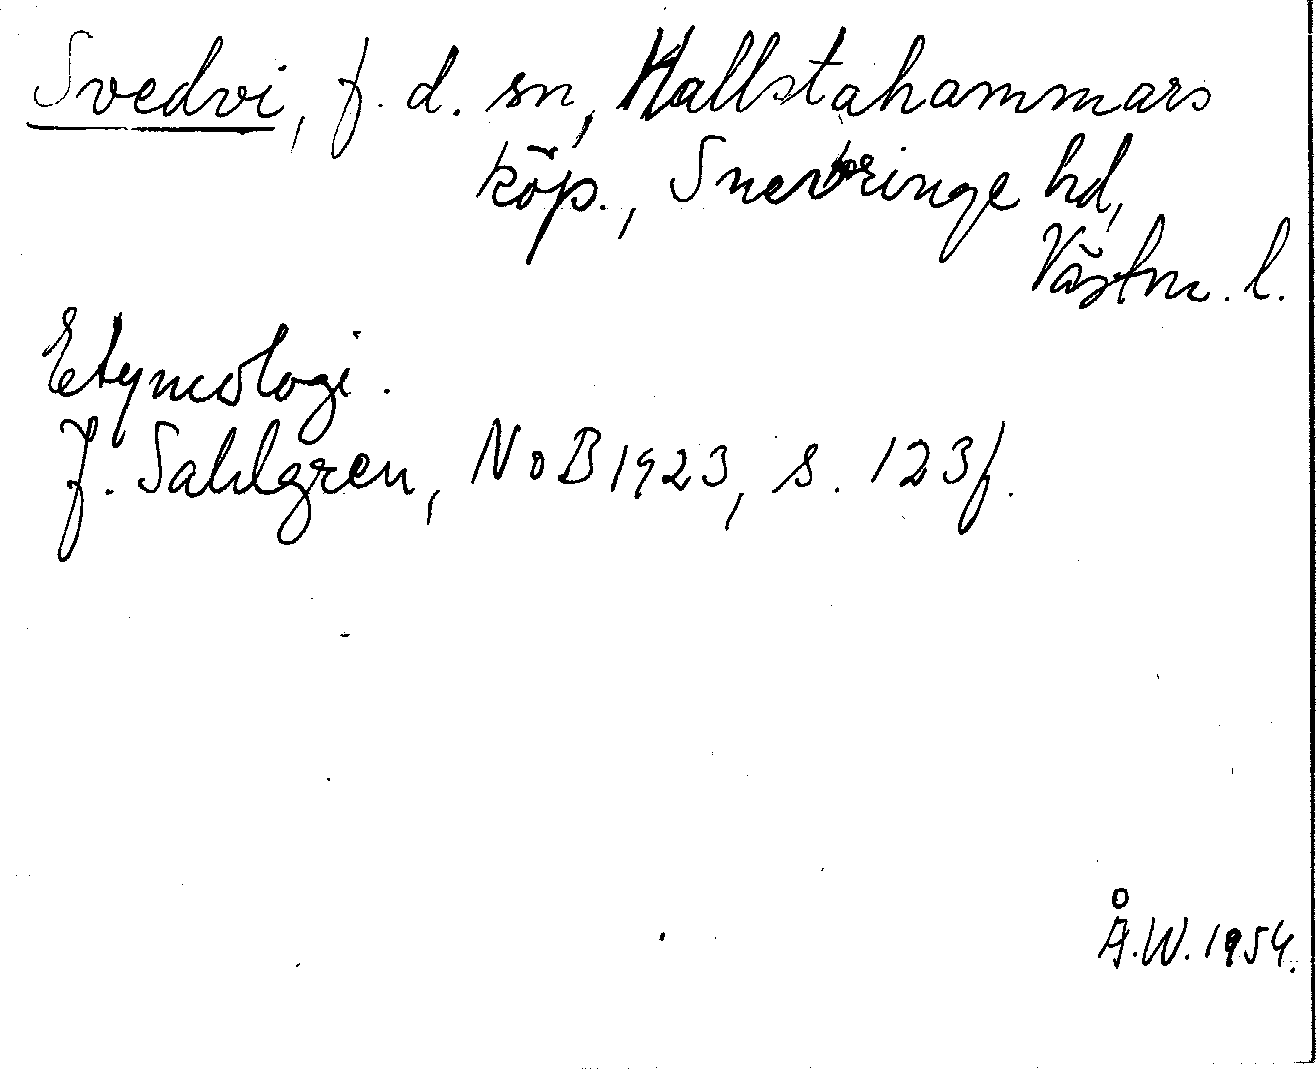 Svedvi, f. d. sn, Hallstahammars
köp., Snevringe hd,
Västm. l.
Etymologi.
J. Sahlgren, NoB 1923, s. 123f.
Å.W. 1954.